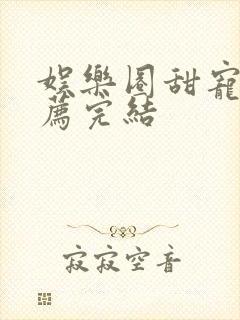 娛樂圈甜寵
薦完結
寂寂空音